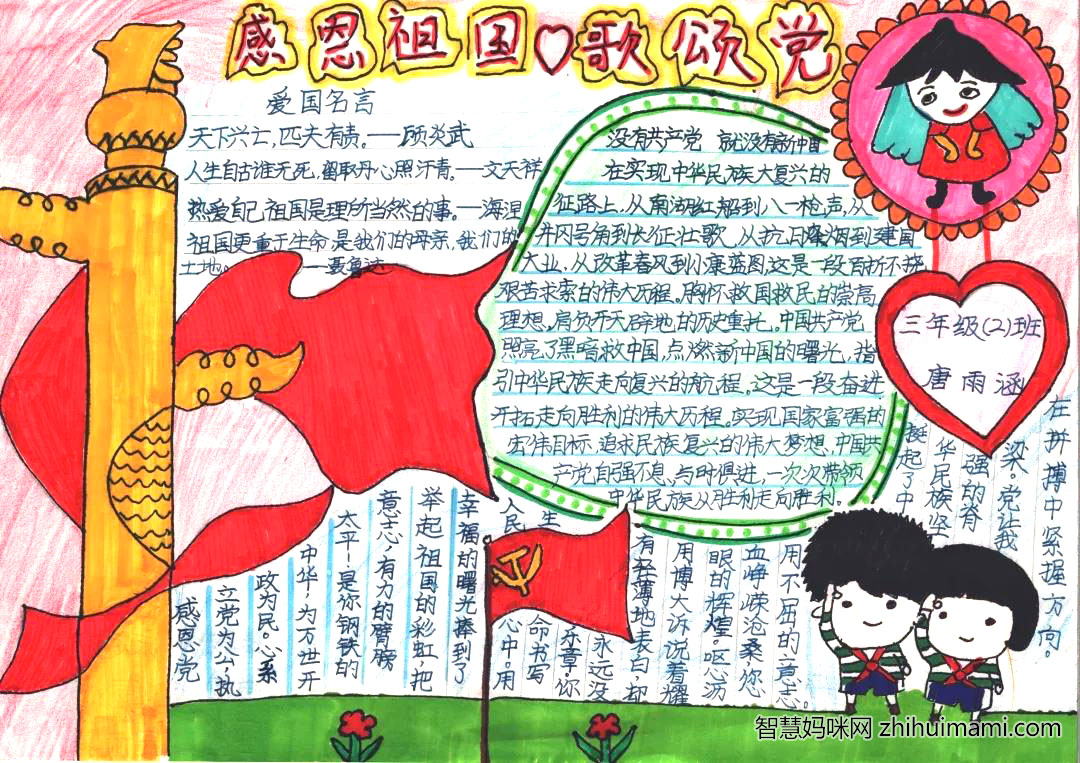 感恩祖国歌颂党
爱国名言
天下兴亡，匹夫有责。——顾炎武
人生自古谁无死，留取丹心照汗青。——文天祥
热爱自己祖国是理所当然的事。——海涅
祖国更重于生命，是我们的母亲，我们的
土地。——聂鲁达
没有共产党 就没有新中国
在实现中华民族大复兴的
征路上，从南湖红船到八一枪声，从
井冈号角到长征壮歌，从抗日烽烟到建国
大业，从改革春风到小康蓝图，这是一段百折不挠
艰苦求索的伟大历程。胸怀救国救民的崇高
理想。肩负开天辟地的历史重托。中国共产党
照亮了黑暗救中国，点燃新中国的曙光，指
引中华民族走向复兴的航程。这是一段奋进
开拓走向胜利的伟大历程。实现国家富强的
宏伟目标，追求民族复兴的伟大梦想，中国共
产党自强不息，与时俱进，一次次带领
中华民族从胜利走向胜利。
三年级(2)班
唐雨涵
感恩党
立党为公，执
政为民。心系
中华，为万世开
太平！是你钢铁的
意志，有力的臂膀
举起祖国的彩虹，把
幸福的曙光捧到了
人民
心中。用
生
命书写
乐章！你
永远没
有轻薄地表白，却
用博大诉说着耀
眼的辉煌，呕沥
血峥嵘沧桑，您
用不屈的意志。
挺起了中
华民族坚
强的脊
梁。党让我
在拼搏中紧握方向。
智慧妈咪网 zhihuimami.com